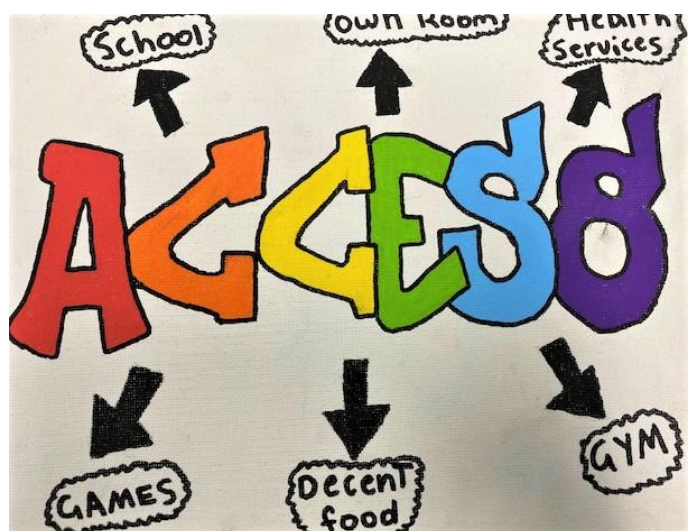 School
own Room
Health
Services
ACCESS
GAMES
Decent
food
GYM